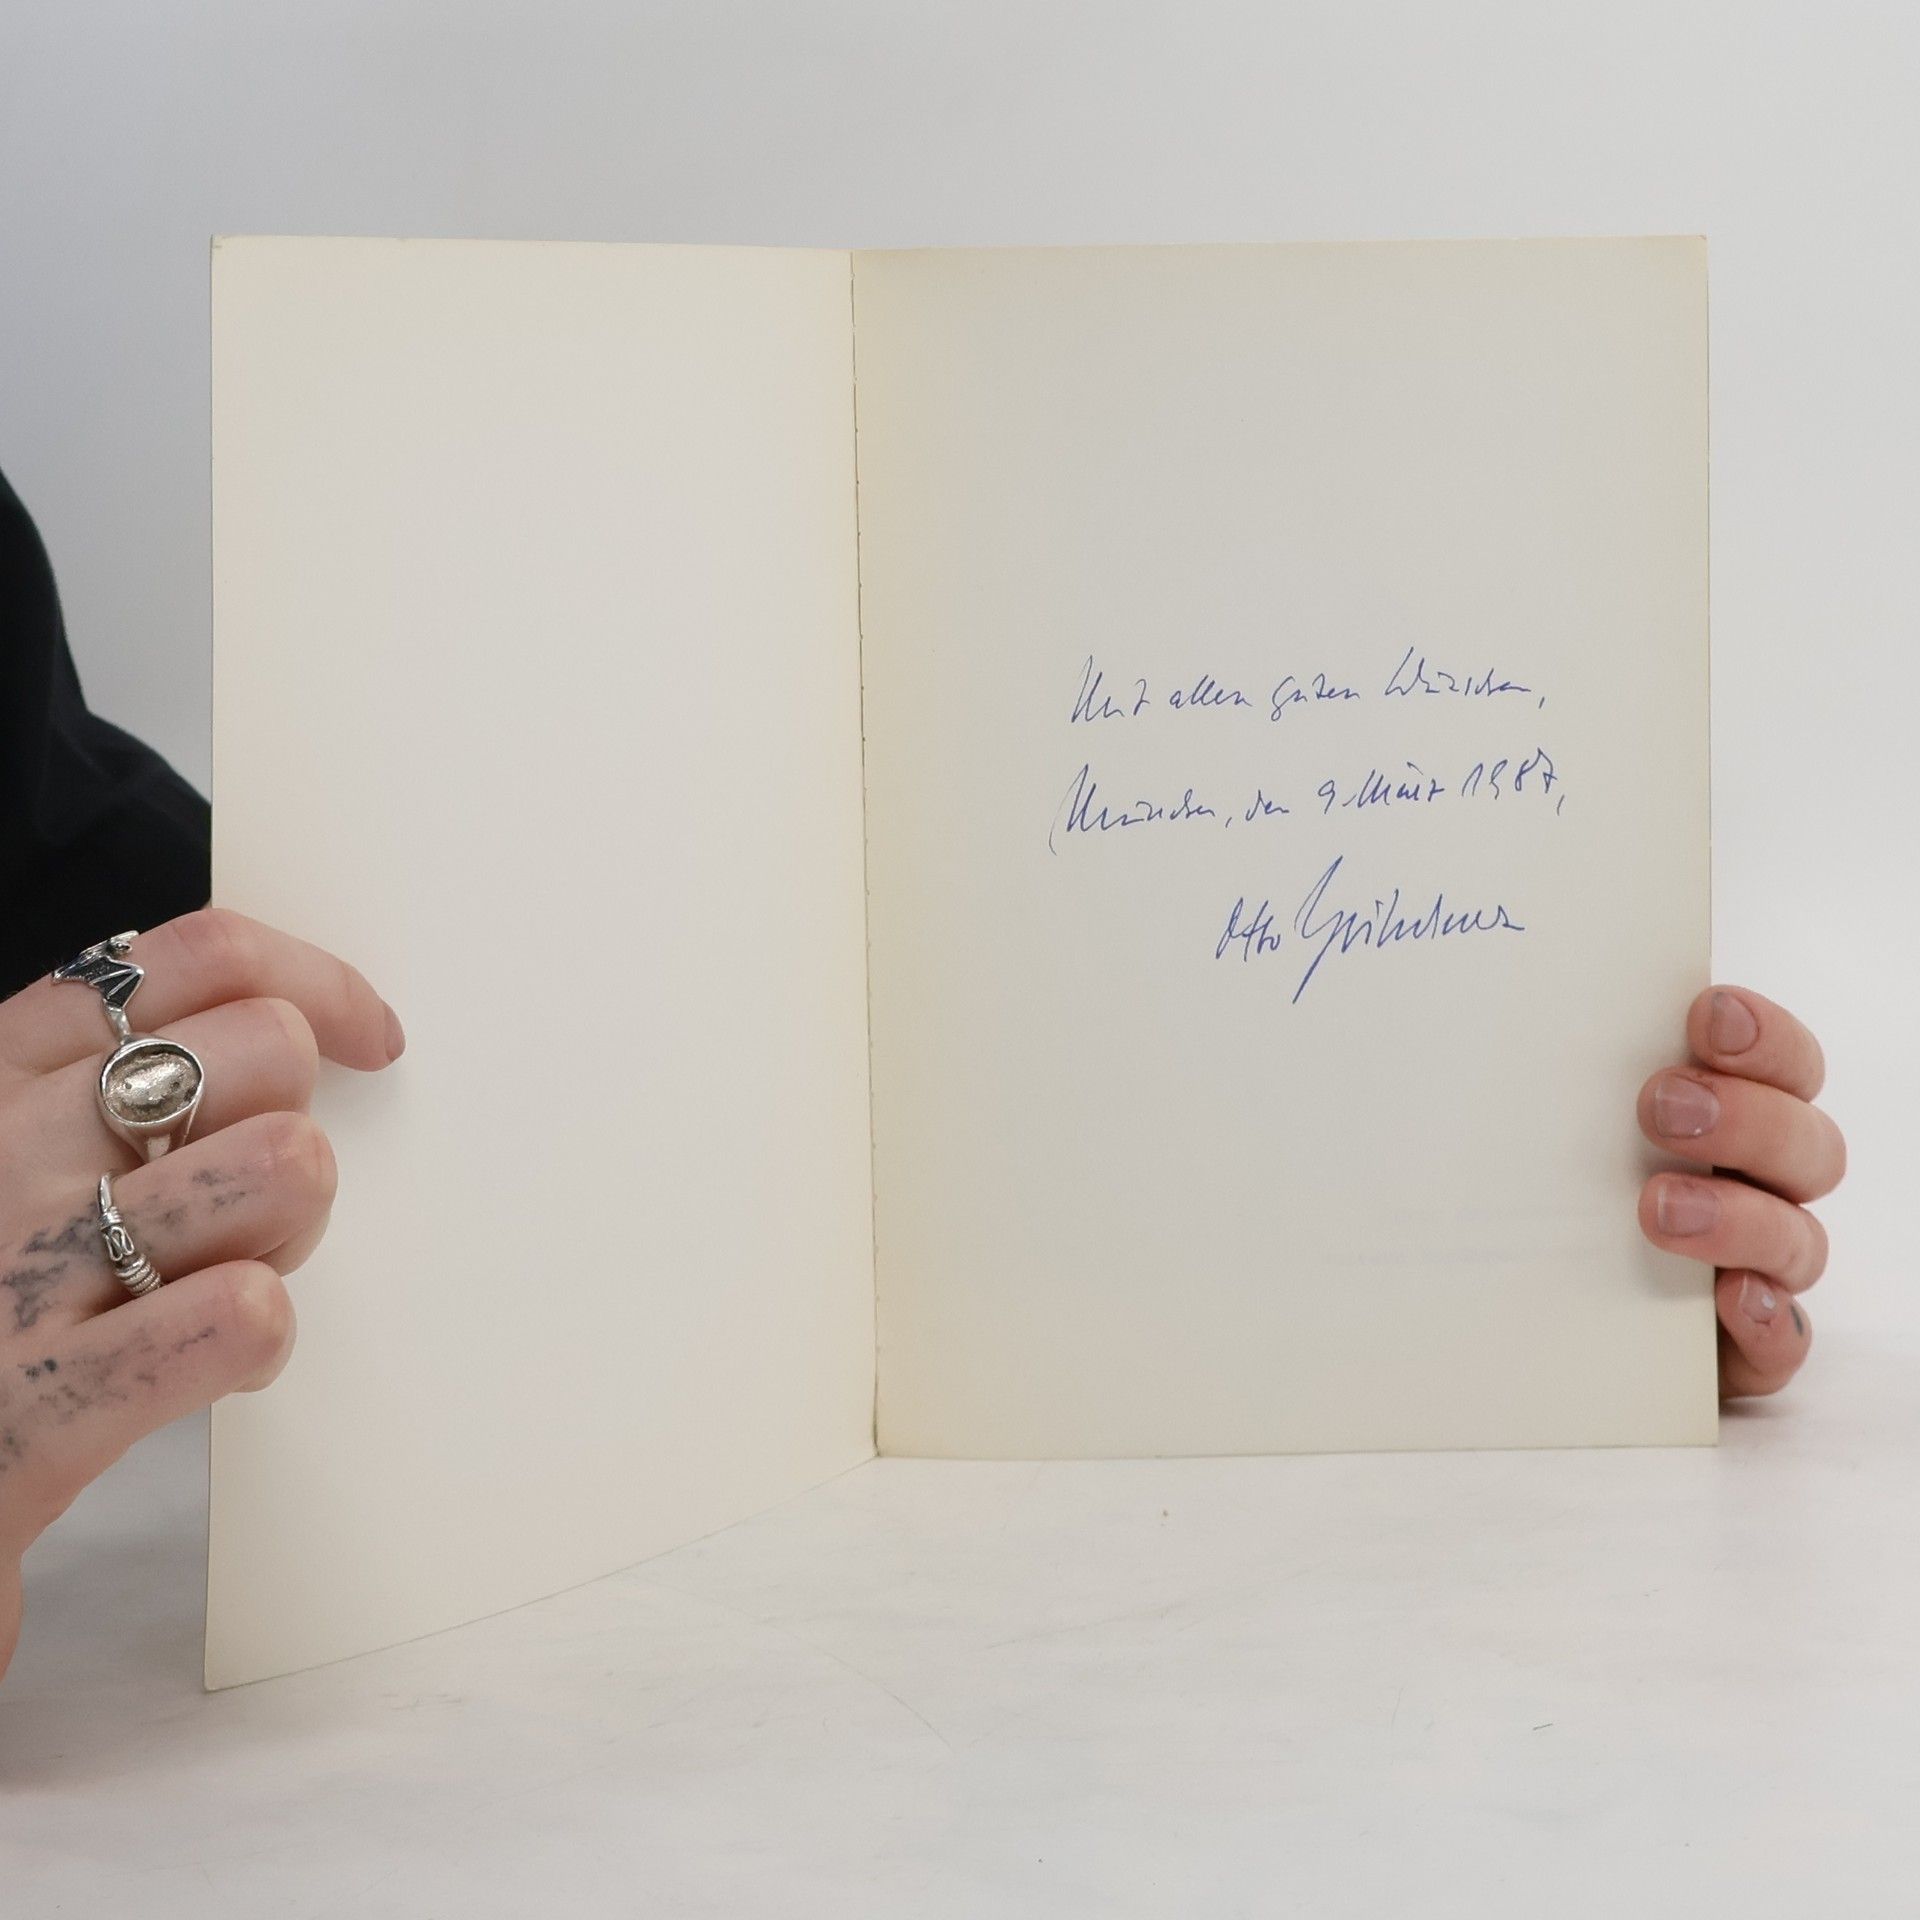 Mit allen guten Wünschen,
München, den 9. März 1987,
Otto